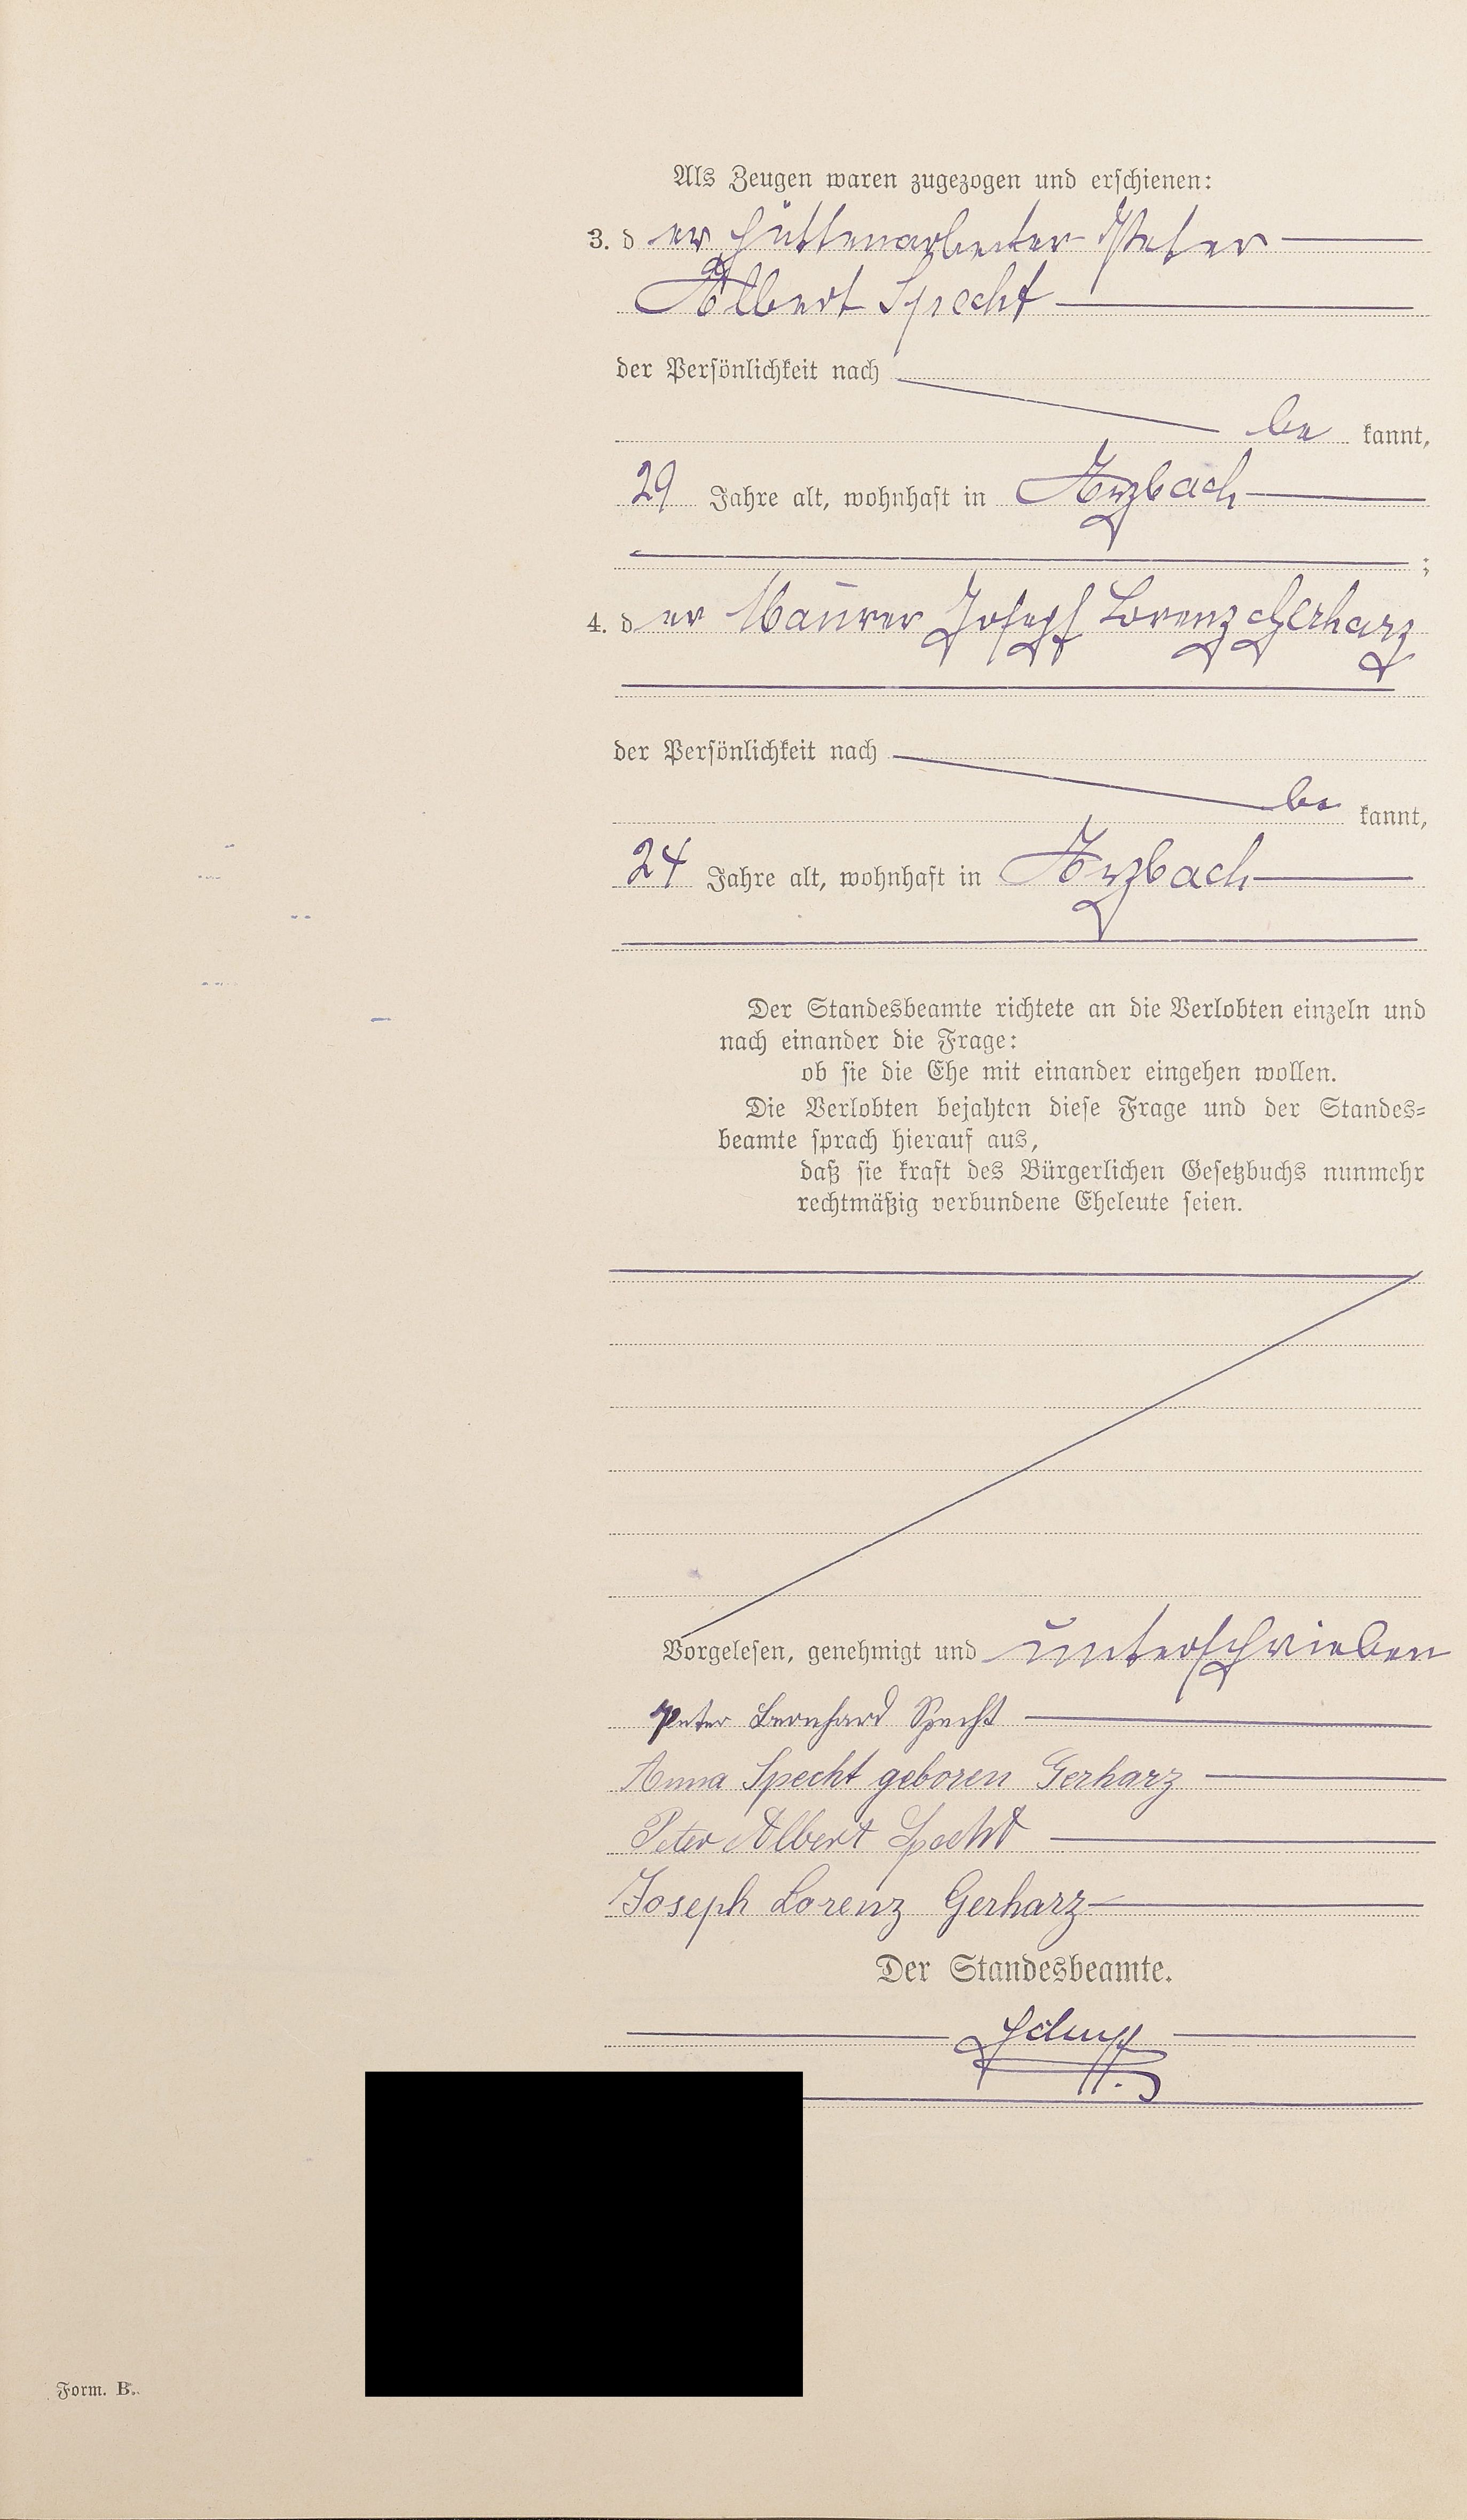 Als Zeugen waren zugezogen und erschienen:
3. d er Hüttenarbeiter Peter
Albert Specht
der Persönlichkeit nach
be kannt,
29 Jahre alt, wohnhaft in Arzbach
;
4. d er Maurer Joseph Lorenz Gerharz
der Persönlichkeit nach
be kannt,
24 Jahre alt, wohnhaft in Arzbach
Der Standesbeamte richtete an die Verlobten einzeln und
nach einander die Frage:
ob sie die Ehe mit einander eingehen wollen.
Die Verlobten bejahten diese Frage und der Standes-
beamte sprach hierauf aus,
daß sie kraft des Bürgerlichen Gesetzbuchs nunmehr
rechtmäßig verbundene Eheleute seien.
Vorgelesen, genehmigt und unterschrieben
Peter Bernhard Specht
Anna Specht geboren Gerharz
Peter Albert Specht
Joseph Lorenz Gerharz
Der Standesbeamte.
Form. B.